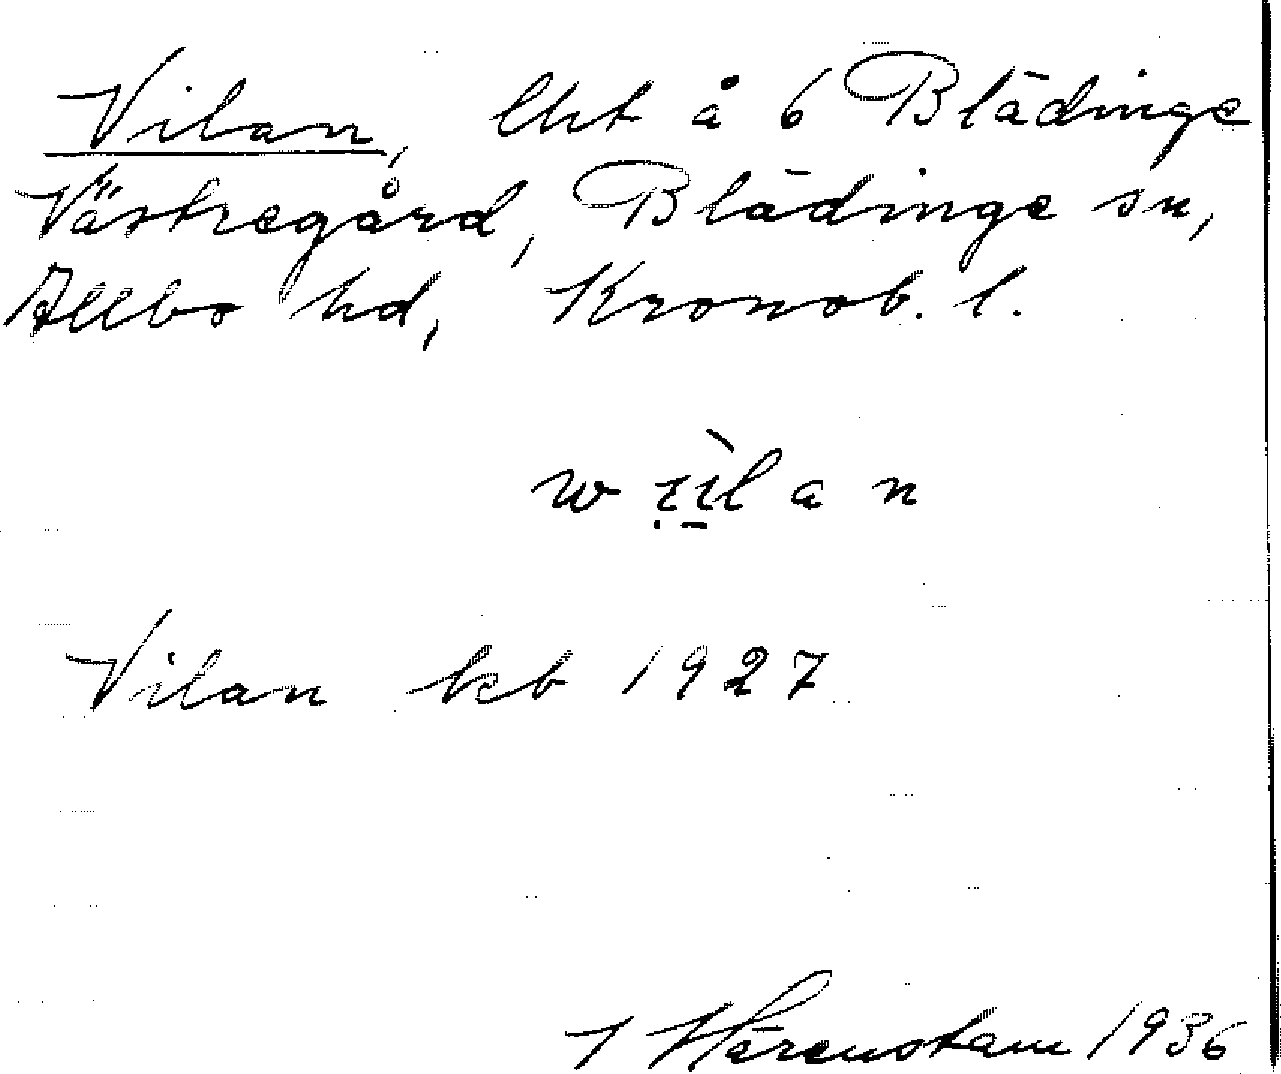 Vilan, lht å 6 Blädinge
Västregård, Blädinge sn,
Allbo hd, Kronob. l.
Vilan kb 1927
Härenstam 1936